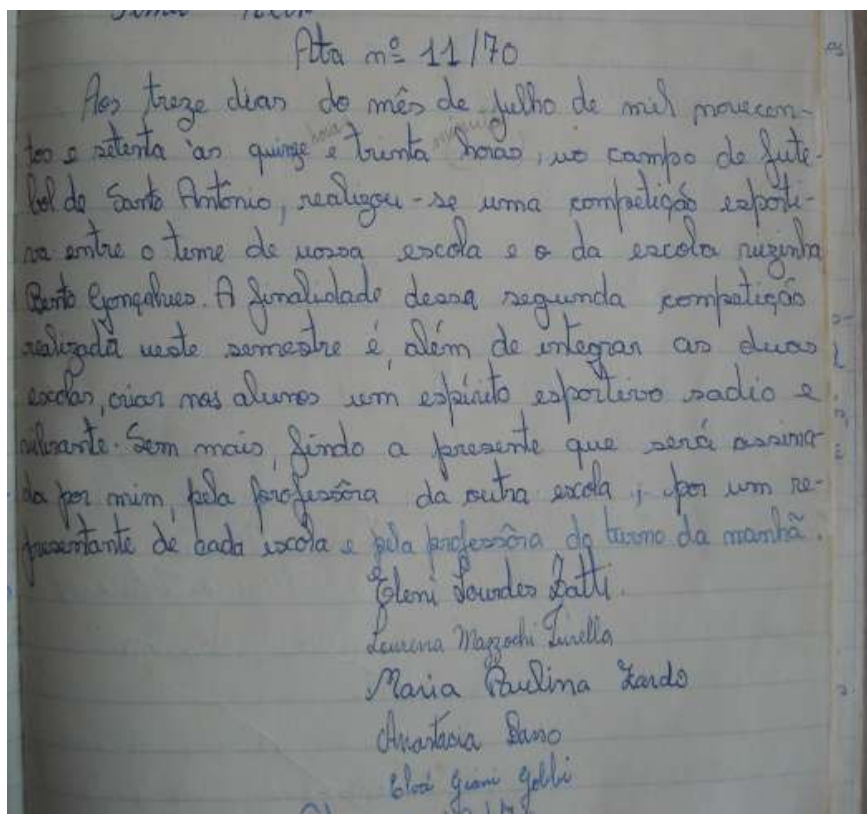 Ata nº 11/70
Aos treze dias do mês de julho de mil novecen-
tos e setenta às quinze horas e trinta minutos horas, no campo de fute-
bol de Santo Antônio, realizou-se uma competição esporti-
va entre o time de nossa escola e o da escola vizinha
Bento Gonçalves. A finalidade dessa segunda competição
realizada neste semestre é, além de integrar as duas
escolas, criar nos alunos um espírito esportivo sadio e
Sem mais, findo a presente que será assina-
da por mim, pela professôra da outra escola, por um re-
presentante de cada escola e pela professôra do turno da manhã.
Eleni Lourdes Zatti.
Mazzochi
Maria Paulina Zardo
Anastácia